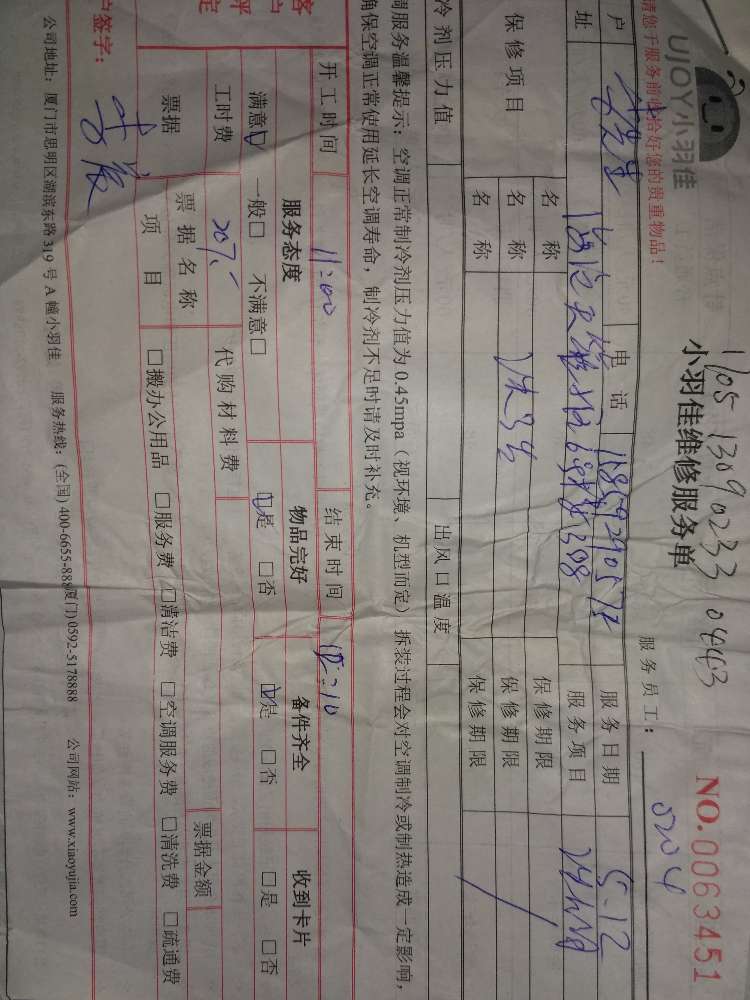 UJOY小羽佳
1705 1309 0233 0443
小羽佳维修服务单
NO.0063451
请您于服务前收拾好您的贵重物品！
服务员工： 0204
户
电话
服务日期 5.12
址
服务项目
保修项目
名称
保修期限
名称
保修期限
名称
保修期限
冷剂压力值
出风口温度
调服务温馨提示：空调正常制冷剂压力值为 0.45mpa（视环境、机型而定）拆装过程会对空调制冷或制热造成一定影响，
确保空调正常使用延长空调寿命，制冷剂不足时请及时补充。
开工时间 11:00 结束时间
服务态度 物品完好 备件齐全 收到卡片
满意☑ 一般□ 不满意□ ☑是 □否 ☑是 □否 □是 □否
工时费 代购材料费
票据 票据名称 票据金额
项目 □搬办公用品 □服务费 □清洁费 □空调服务费 □清洗费 □疏通费
户签字：
公司地址：厦门市思明区湖滨东路 319 号 A 幢小羽佳 服务热线：(全国) 400-6655-888(厦门) 0592-5178888 公司网站：www.xiaoyujia.com